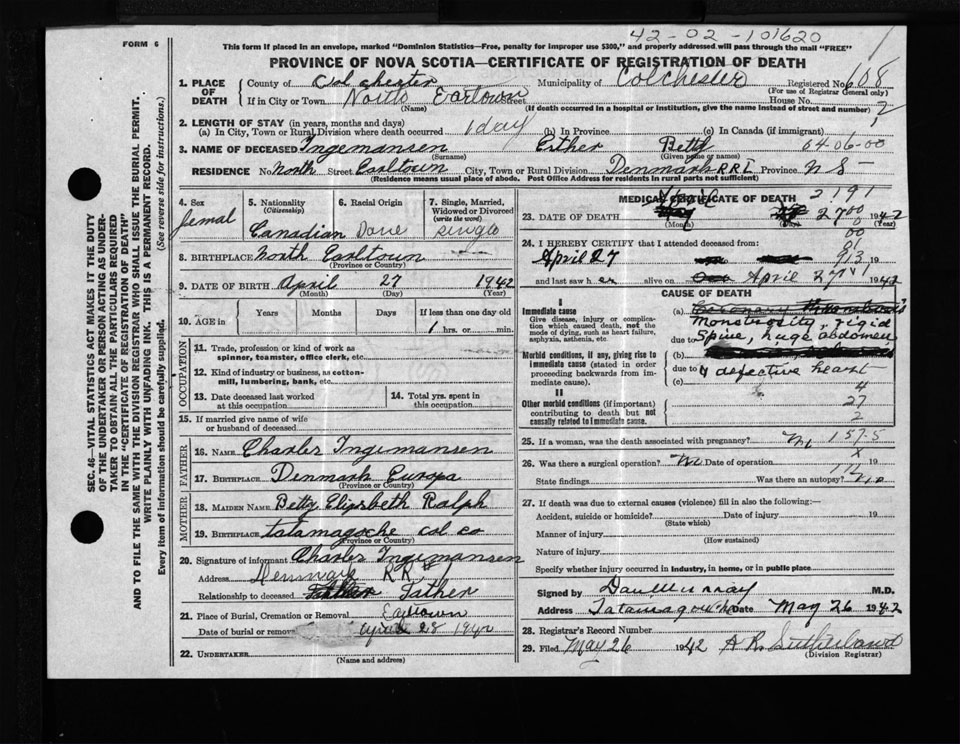 42-02-101620
FORM 6
This form if placed in an envelope, marked "Dominion Statistics—Free, penalty for improper use $300," and properly addressed will pass through the mail "FREE"
PROVINCE OF NOVA SCOTIA—CERTIFICATE OF REGISTRATION OF DEATH
1. PLACE OF DEATH
County of Colchester Municipality of Colchester Registered No. 608
(For use of Registrar General only)
If in City or Town North Earltown Street House No.
(Name) (If death occurred in a hospital or institution, give the name instead of street and number)
2. LENGTH OF STAY (in years, months and days)
(a) In City, Town or Rural Division where death occurred 1 day (b) In Province (c) In Canada (if immigrant)
3. NAME OF DECEASED Ingemansen Esther Betty 64-06-00
(Surname) (Given name or names)
RESIDENCE No. North Street Earltown City, Town or Rural Division Denmark RR1 Province N S
(Residence means usual place of abode. Post Office Address for residents in rural parts not sufficient)
4. Sex
femal
5. Nationality
(Citizenship)
Canadian
6. Racial Origin
Dane
7. Single, Married, Widowed or Divorced
(write the word)
single
8. BIRTHPLACE North Earltown
(Province or Country)
9. DATE OF BIRTH April 27 1942
(Month) (Day) (Year)
10. AGE in
Years Months Days If less than one day old
1 hrs. or min.
OCCUPATION
11. Trade, profession or kind of work as spinner, teamster, office clerk, etc.
12. Kind of industry or business, as cotton-mill, lumbering, bank, etc.
13. Date deceased last worked at this occupation
14. Total yrs. spent in this occupation
15. If married give name of wife or husband of deceased
FATHER
16. NAME Charles Ingemansen
17. BIRTHPLACE Denmark Europa
(Province or Country)
MOTHER
18. MAIDEN NAME Betty Elizabeth Ralph
19. BIRTHPLACE tatamagoche col co
(Province or Country)
20. Signature of informant Charles Ingemansen
Address RR
Relationship to deceased Father
21. Place of Burial, Cremation or Removal Earltown
Date of burial or removal April 28 1942
22. UNDERTAKER
(Name and address)
MEDICAL CERTIFICATE OF DEATH
2191
23. DATE OF DEATH April 27 1942
(Month) (Day) (Year)
24. I HEREBY CERTIFY that I attended deceased from:
April 27 19
and last saw her alive on April 27 1942
CAUSE OF DEATH
I
Immediate cause
Give disease, injury or complication which caused death, not the mode of dying, such as heart failure, asphyxia, asthenia, etc.
(a)
Monstrosity, rigid
due to Spine, huge abdomen
Morbid conditions, if any, giving rise to immediate cause (stated in order proceeding backwards from immediate cause.
(b)
due to & defective heart
(c) 4
II
Other morbid conditions (if important) contributing to death but not causally related to immediate cause.
27
2
25. If a woman, was the death associated with pregnancy? 157.5
26. Was there a surgical operation? No Date of operation 19
State findings Was there an autopsy? No
27. If death was due to external causes (violence) fill in also the following:—
Accident, suicide or homicide? Date of injury 19
(State which)
Manner of injury
(How sustained)
Nature of injury
Specify whether injury occurred in industry, in home, or in public place
Signed by Dan Murray M.D.
Address Tatamagouche Date May 26 1942
28. Registrar's Record Number
29. Filed May 26 1942 A R Sutherland
(Division Registrar)
SEC. 46—VITAL STATISTICS ACT MAKES IT THE DUTY
OF THE UNDERTAKER OR PERSON ACTING AS UNDER-
TAKER TO OBTAIN ALL THE PARTICULARS REQUIRED
IN THE "CERTIFICATE OF REGISTRATION OF DEATH"
AND TO FILE THE SAME WITH THE DIVISION REGISTRAR WHO SHALL ISSUE THE BURIAL PERMIT.
WRITE PLAINLY WITH UNFADING INK. THIS IS A PERMANENT RECORD.
Every item of information should be carefully supplied. (See reverse side for instructions.)